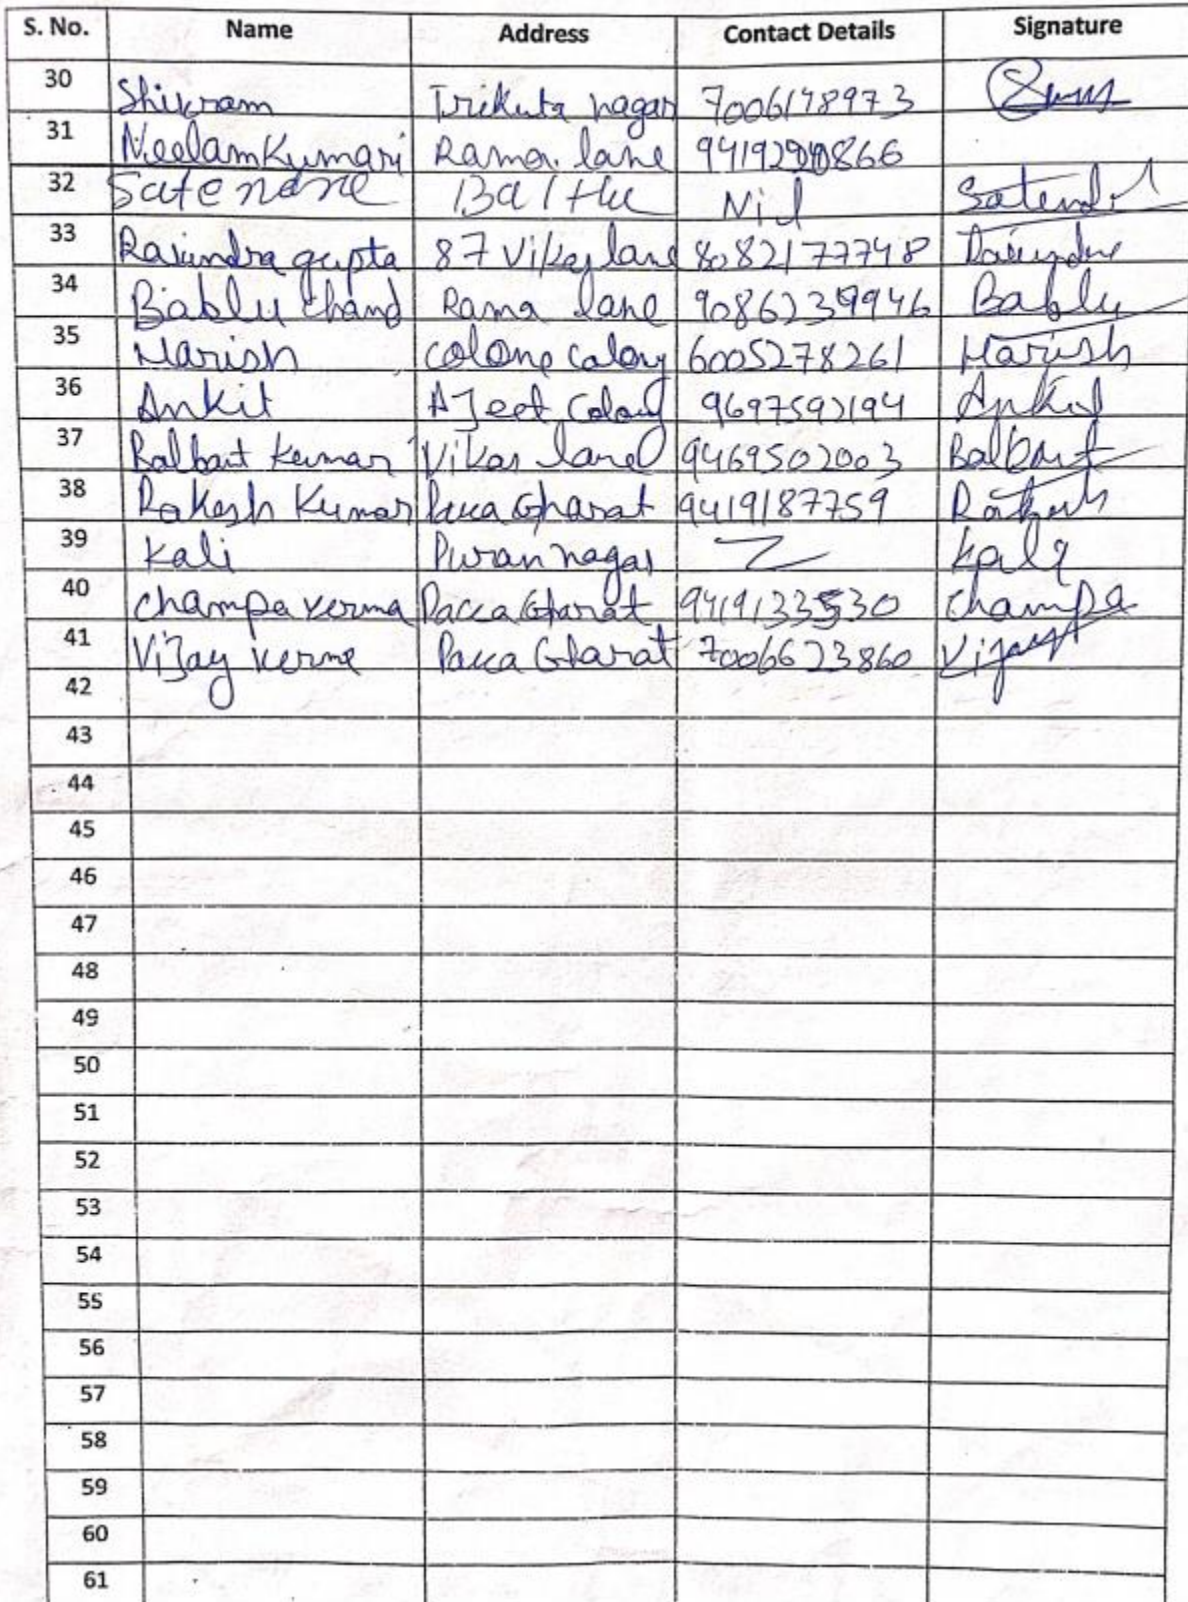 S. No. Name Address Contact Details Signature
30 Shivram Trikuta nagar 7006178973
31 Neelam Kumari Rama lane
32 Satenane Balthu Nil Satend
33 Ravindra gupta 87 Vikas lane 8082177748 Ravindra
34 Bablu Chand Rama lane 9086239946 Bablu
35 Harish colone colony 6005278261 Harish
36 Ankit AJeet Colony 9697592194 Ankit
37 Balbant Kumar Vikas lane 9469502003 Balbant
38 Rakesh Kumar Pacca Gharat 9419187759 Rakesh
39 Kali Puran nagar Kali
40 champa verma Pacca Gharat 9419133530 champa
41 ViJay verma Pacca Gharat 7006623860 Vijay
42
43
44
45
46
47
48
49
50
51
52
53
54
55
56
57
58
59
60
61